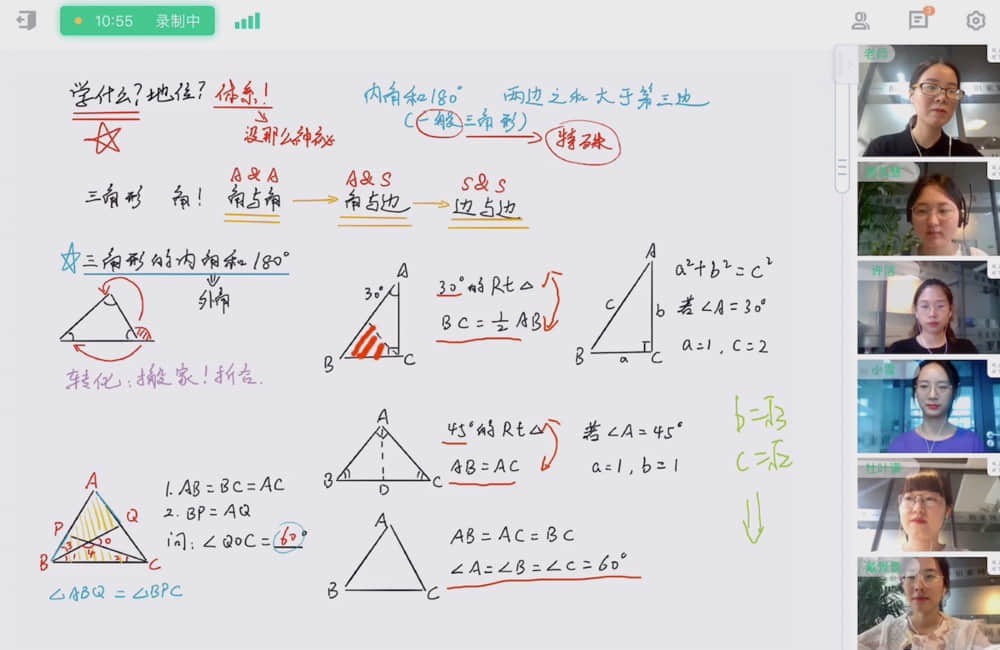 10:55 录制中
学什么?地位?体系!
没那么神秘
内角和180° 两边之和大于第三边
(一般三角形)
特殊
三角形 角!
A&A
角与角
A&S
角与边
S&S
边与边
三角形的内角和180°
外角
转化:搬家!折合.
A
30°
B
C
30°的Rt△
BC=½AB
A
c
b
B
a
C
a²+b²=c²
若∠A=30°
a=1, c=2
A
B
D
C
45°的Rt△
AB=AC
若∠A=45°
a=1, b=1
b=√3
c=√2
A
P
Q
O
B
C
1. AB=BC=AC
2. BP=AQ
问:∠QOC=60°
∠ABQ=∠BPC
A
B
C
AB=AC=BC
∠A=∠B=∠C=60°
老师
小雪